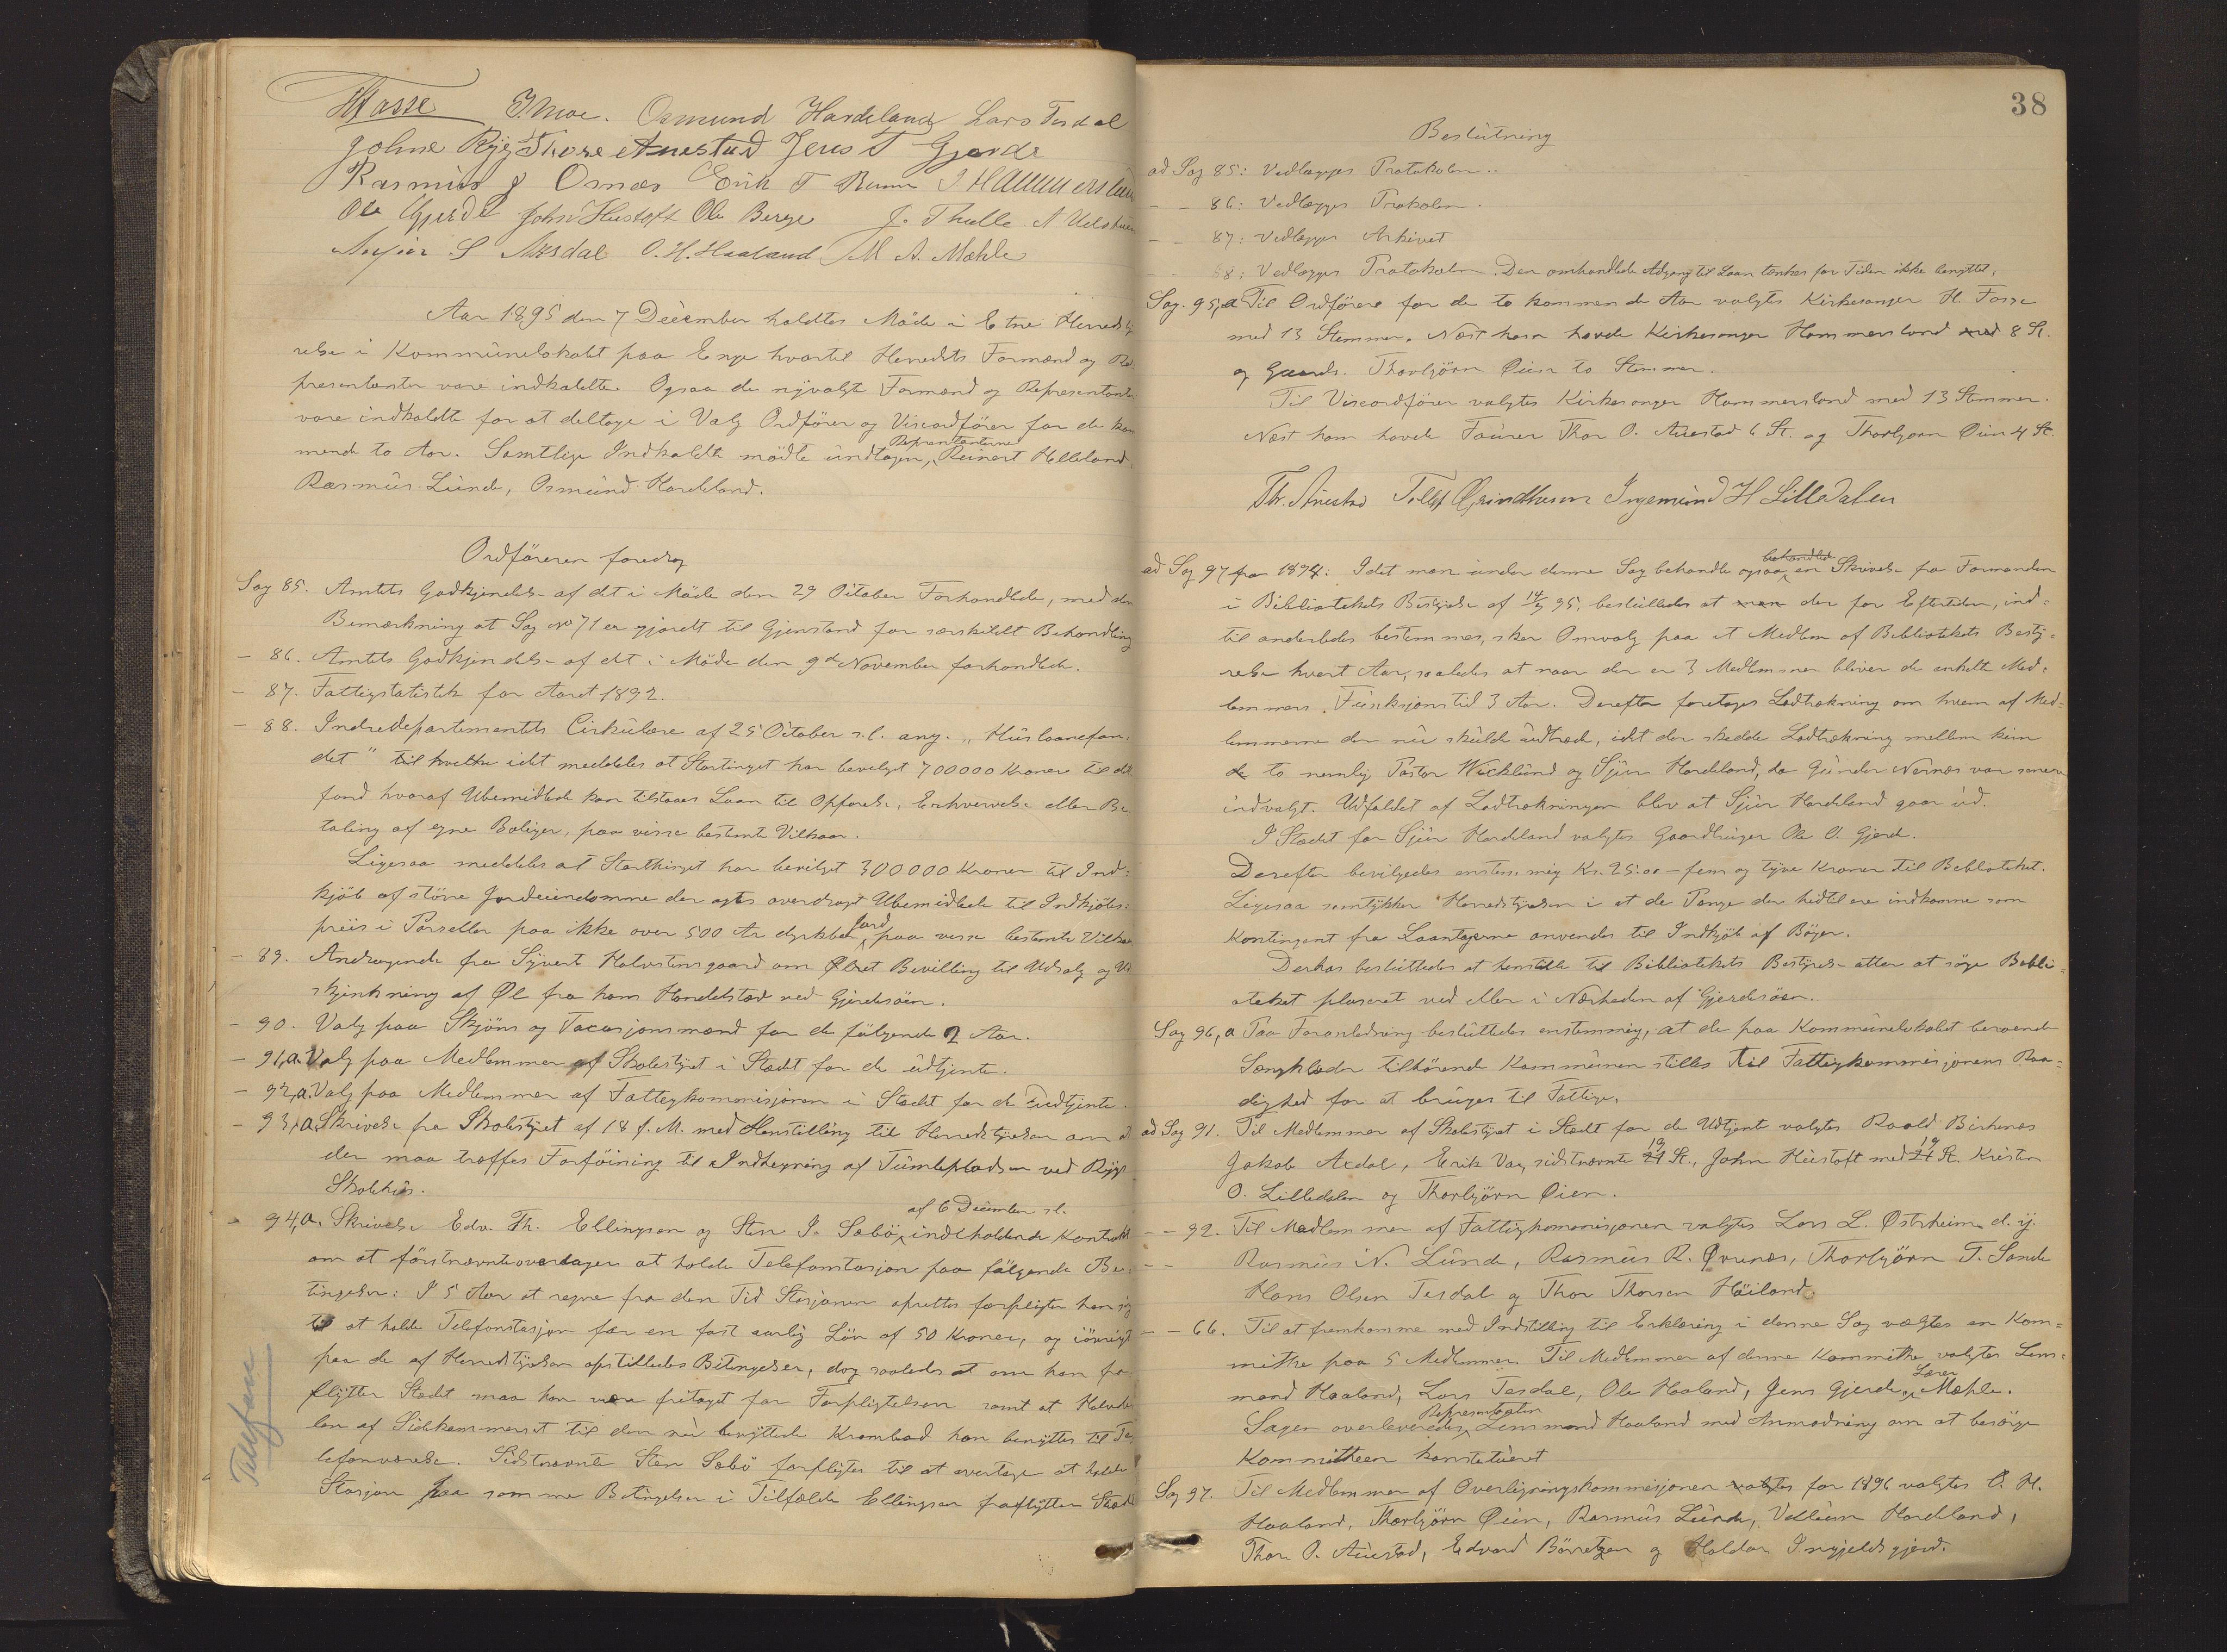 H Fasse J. Moe. Osmund Hardeland Lars Tesdal
Johne Ryg Thore Auestad Jens T Gjerde
Rasmus J Ornæs Erik T J Hammersland
Ole Gjerde John Hustoft Ole Berge J. Thulle N
S O. H. Haaland M A. Mæhle
Aar 1895 den 7 December holdtes Möde i Etne Herredsty
relse i Kommunelokalet paa Enge hvortil Herredets Formænd og Re
presentanter vare indkaldte. Ogsaa de nyvalgte Formænd og Representanter
vare indkaldte for at deltage i Valg Ordförer og Viceordförer for de kom
mende to Aar. Samtlige Indkaldte mödte undtagen Representanterne Reinert Helleland
Rasmus Lunde, Osmund Hardeland.
Ordföreren foredrog
Sag 85. Amtets Godkjendelse af det i Möde den 29 Oktober Forhandlede, med den
Bemærkning at Sag No 71 er gjordt til Gjenstand for særskildt Behandling
- 86. Amtets Godkjendelse af det i Möde den 9de November forhandlede.
- 87. Fattigstatistik for Aaret 1892.
- 88. Indredepartementets Cirkulære af 25 Oktober s.l. ang. "Huslaanefon-
det" til hvilket idet meddeles at Stortinget har bevilget 700000 Kroner til det
fond hvoraf Ubemidlede kan tilstaaes Laan til Opförelse, Erhvervelse eller Be
taling af egne Boliger, paa visse bestemte Vilkaar.
Ligesaa meddeles at Storthinget har bevilget 300000 Kroner til Ind-
kjöb af större Jordeiendomme der agtes overdraget Ubemidlede til Indkjöbs-
priis i Parseller paa ikke over 500 Ar dyrkbar Jord paa visse bestemte Vilkaar
- 89. Andragende fra Syvert Halvstensgaard om Ölret Bevilling til Udsalg og Ud
skjenkning af Øl fra hans Handelssted ved Gjerdesöen.
- 90. Valg paa Skjöns og Taxasjonsmænd for de fölgende 2 Aar.
- 91,a Valg paa Medlemmer af Skolestyret i Stedet for de udtjente.
- 92,a. Valg paa Medlemmer af Fattigkommisjonen i Stedet for de Udtjente.
- 93,a Skrivelse fra Skolestyret af 18 f. M. med Henstilling til Herredstyrelsen om at
der maa træffes Forföining til Indhegning af Tumlepladsen ved Rygs
Skolehus.
- 94,a. Skrivelse Edv. Th. Ellingsen og Sten J. Sæbö, af 6 December s.l. indeholdende Kontrakt
om at förstnævnte overtager at holde Telefonstasjon paa fölgende Be-
tingelser: I 5 Aar at regne fra den Tid Stasjonen oprettes forpligter han sig
til at holde Telefonstasjon for en fast aarlig Lön af 50 Kroner, og iövrigt
paa de af Herredstyrelsen opstilledes Betingelser, dog saaledes at om han fra
flytter Stedet maa han være fritaget for Forpligtelsen samt at Halvde
len af Sidekammeret til den nu benyttede Krambod han benyttes til Te-
lefonværelse. Sidstnævnte Sten Sæbö forpligtes til at overtage at holde
Stasjon paa samme Betingelser i Tilfælde Ellingsen fraflytter Stedet
Telefon
38
Beslutning
ad Sag 85: Vedlægges Protokolen.
- - 86: Vedlægges Protokolen.
- - 87: Vedlægges Arkivet
- - 88: Vedlægges Protokolen. Den omhandlede Adgang til Laan tænkes for Tiden ikke benyttet.
Sag. 95,a Til Ordförere for de to kommende Aar valgtes Kirkesanger H. Fasse
med 13 Stemmer. Næst ham havde Kirkesanger Hammersland med 8 St.
og Gaardb. Thorbjörn Øien to Stemmer.
Til Viceordförer valgtes Kirkesanger Hammersland med 13 Stemmer.
Næst ham havde Thor O. Auestad 6 St. og Thorbjörn Øien 4 St.
Th. Auestad Tollef Grindheim Ingemund H Lilledalen
ad Sag 97 fra 1894: Idet man under denne Sag behandle ogsaa behandlede en Skrivelse fra Formanden
i Bibliotekets Bestyrelse af 14/9 95, besluttedes at man der for Eftertiden, ind-
til anderledes bestemmes, sker Omvalg paa et Medlem af Bibliotekets Besty-
relse hvert Aar, saaledes at naar der er 3 Medlemmer bliver de enkelte Med-
lemmers Funksjonstid 3 Aar. Derefter foretoges Lodtrækning om hvem af Med-
lemmerne der nu skulde udtræde, idet der skedde Lodtrækning mellem kun
de to nemlig Pastor Wicklund og Sjur Hardeland, da Gunder Nernæs var senere
indvalgt. Udfaldet af Lodtrækningen blev at Sjur Hardeland gaar ud.
I Stedet for Sjur Hardeland valgtes Gaardbruger Ole O. Gjerde.
Derefter bevilgedes enstemmig Kr. 25.00 – fem og tyve Kroner til Biblioteket.
Ligesaa samtykker Herredstyrelsen i at de Penge der hidtil ere indkomne som
Kontingent fra Laantagerne anvendes til Indkjöb af Böger.
Derhos besluttedes at henstille til Bibliotekets Bestyrelse atter at söge Bibli-
oteket plaseret ved eller i Nærheden af Gjerdesöen.
Sag 96,a Paa Foranledning besluttedes enstemmig, at de paa Kommunelokalet beroende
Sengklæder tilhörende Kommunen stilles til Fattigkommisjonens Raa-
dighed for at bruges til Fattige.
ad Sag 91. Til Medlemmer af Skolestyret i Stedet for de Udtjente valgtes Roald Birkenæs
Jakob Axdal, Erik Vaa, sidstnævnte 21 19 St., John Hustoft med 21 19 St. Kristen
O. Lilledalen og Thorbjörn Øien.
- - 92. Til Medlemmer af Fattigkommisjonen valgtes Lars L. Østrheim d. y.
Rasmus N. Lunde, Rasmus R. Ørenæs, Thorbjörn T. Sande
Hans Olsen Tesdal og Thor Thorsen Höiland.
- - 66. Til at fremkomme med Indstilling til Erklæring i denne Sag valgtes en Kom-
mithe paa 5 Medlemmer. Til Medlemmer af denne Kommithe valgtes Lens-
mand Haaland, Lars Tesdal, Ole Haaland, Jens Gjerde, Lærer Mæhle.
Sagen overleveredes Representanten Lensmand Haaland med Anmodning om at besörge
Kommitheen konstitueret
Sag 97. Til Medlemmer af Overligningskommisjonen valgtes for 1896 valgtes O. H.
Haaland, Thorbjörn Øien, Rasmus Lunde, Hardeland,
Thor O. Auestad, Edvard Börretzen og Haldor Ingjeldsgjerd.